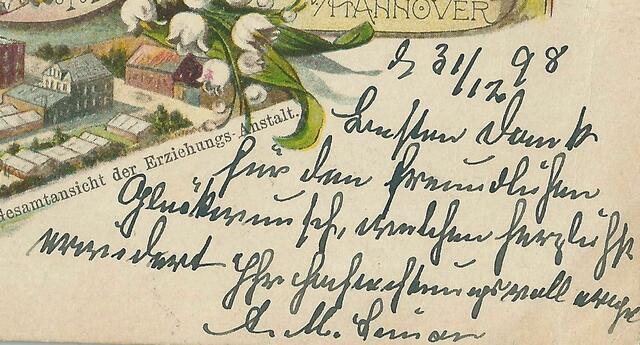 HANNOVER
Gesamtansicht der Erziehungs-Anstalt.
d 31/12 98
Besten Dank
für den freundlichen
Glückwunsch, welchen herzlichst
erwidert Ihr hochachtungsvoll
A. M.